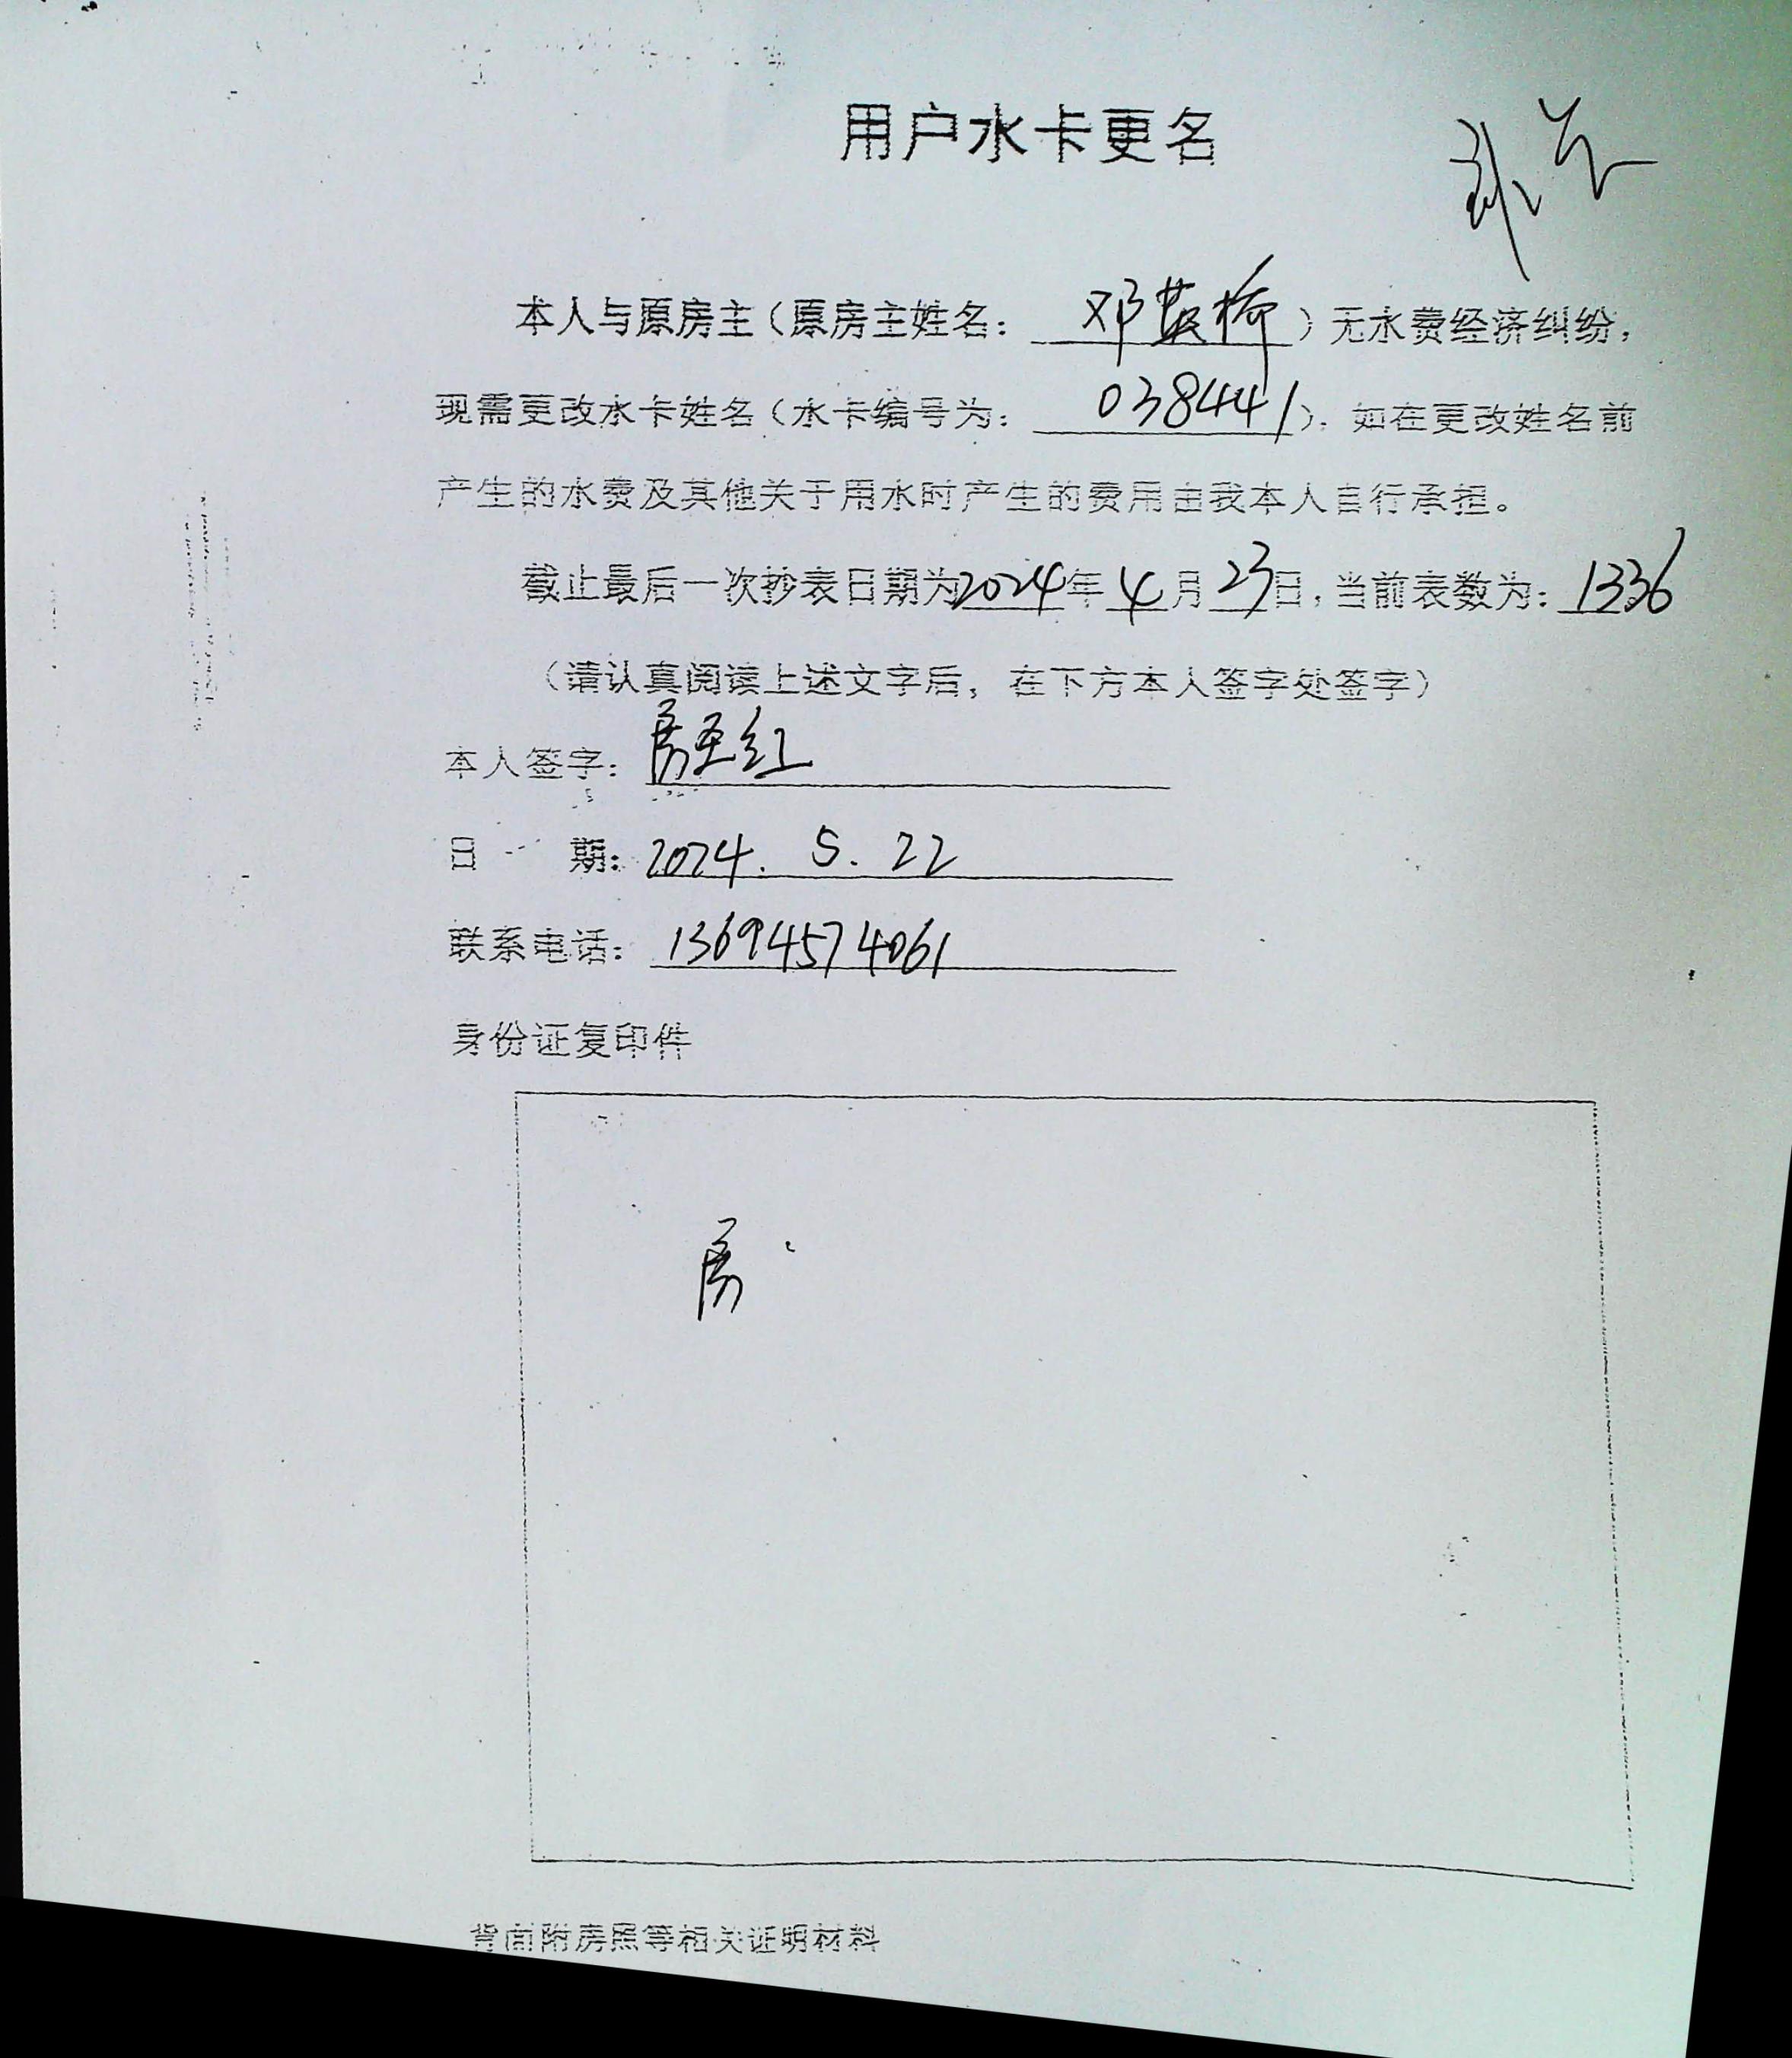 用户水卡更名
本人与原房主（原房主姓名：邓）无水费经济纠纷，
现需更改水卡姓名（水卡编号为：038441）．如在更改姓名前
产生的水费及其他关于用水时产生的费用由我本人自行承担。
截止最后一次抄表日期为2024年4月23日，当前表数为：1336
（请认真阅读上述文字后，在下方本人签字处签字）
本人签字：房至红
日 期：2024.5.22
联系电话：13694574061
身份证复印件
房
背面附房照等相关证明材料